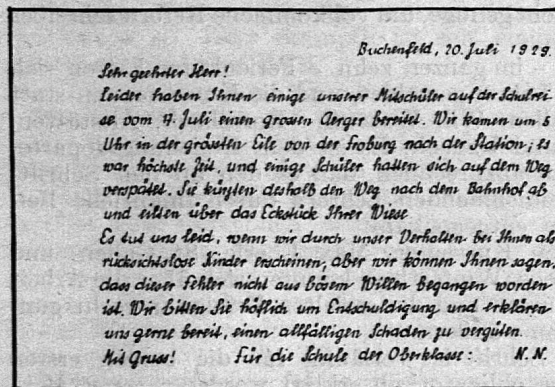 Buchenfeld, 20. Juli 1929.
Sehr geehrter Herr!
Leider haben Ihnen einige unserer Mitschüler auf der Schulrei-
se vom 7. Juli einen grossen Aerger bereitet. Wir kamen um 5
Uhr in der grössten Eile von der Froburg nach der Station; es
war höchste Zeit, und einige Schüler hatten sich auf dem Weg
verspätet. Sie kürzten deshalb den Weg nach dem Bahnhof ab
und eilten über das Eckstück Ihrer Wiese.
Es tut uns leid, wenn wir durch unser Verhalten bei Ihnen als
rücksichtslose Kinder erscheinen, aber wir können Ihnen sagen,
dass dieser Fehler nicht aus bösem Willen begangen worden
ist. Wir bitten Sie höflich um Entschuldigung und erklären
uns gerne bereit, einen allfälligen Schaden zu vergüten.
Mit Gruss! Für die Schule der Oberklasse: N. N.